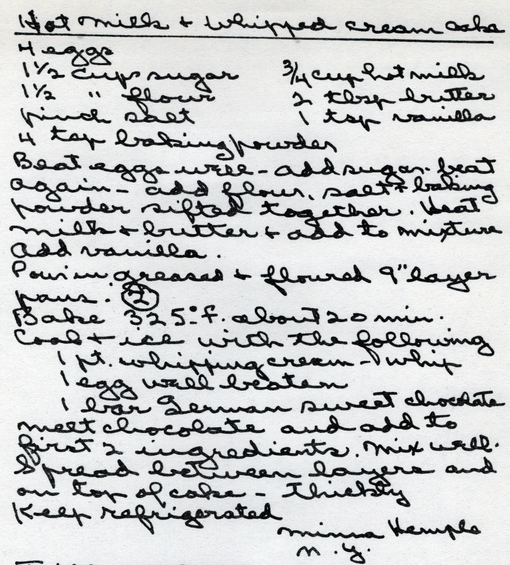 Hot Milk + Whipped cream cake
4 eggs
1 1/2 cups sugar 3/4 cup hot milk
1 1/2 " flour 2 tbsp butter
pinch salt 1 tsp vanilla
4 tsp baking powder
Beat eggs well - add sugar. beat
again - add flour, salt + baking
powder sifted together. Heat
milk + butter + add to mixture
add vanilla.
Pour in greased + floured 9" layer
pans. 2
Bake 325° f. about 20 min.
Cool + ice with the following
1 pt. whipping cream - whip
1 egg well beaten
1 bar German sweet chocolate
melt chocolate and add to
first 2 ingredients. Mix well.
Spread between layers and
on top of cake - thickly
Keep refrigerated
Minna
N.Y.